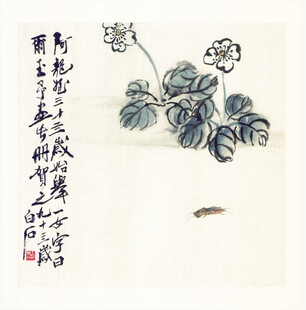 阿龍三十三歲始舉一女字曰
爾予畫此冊賀之九十三歲
白石